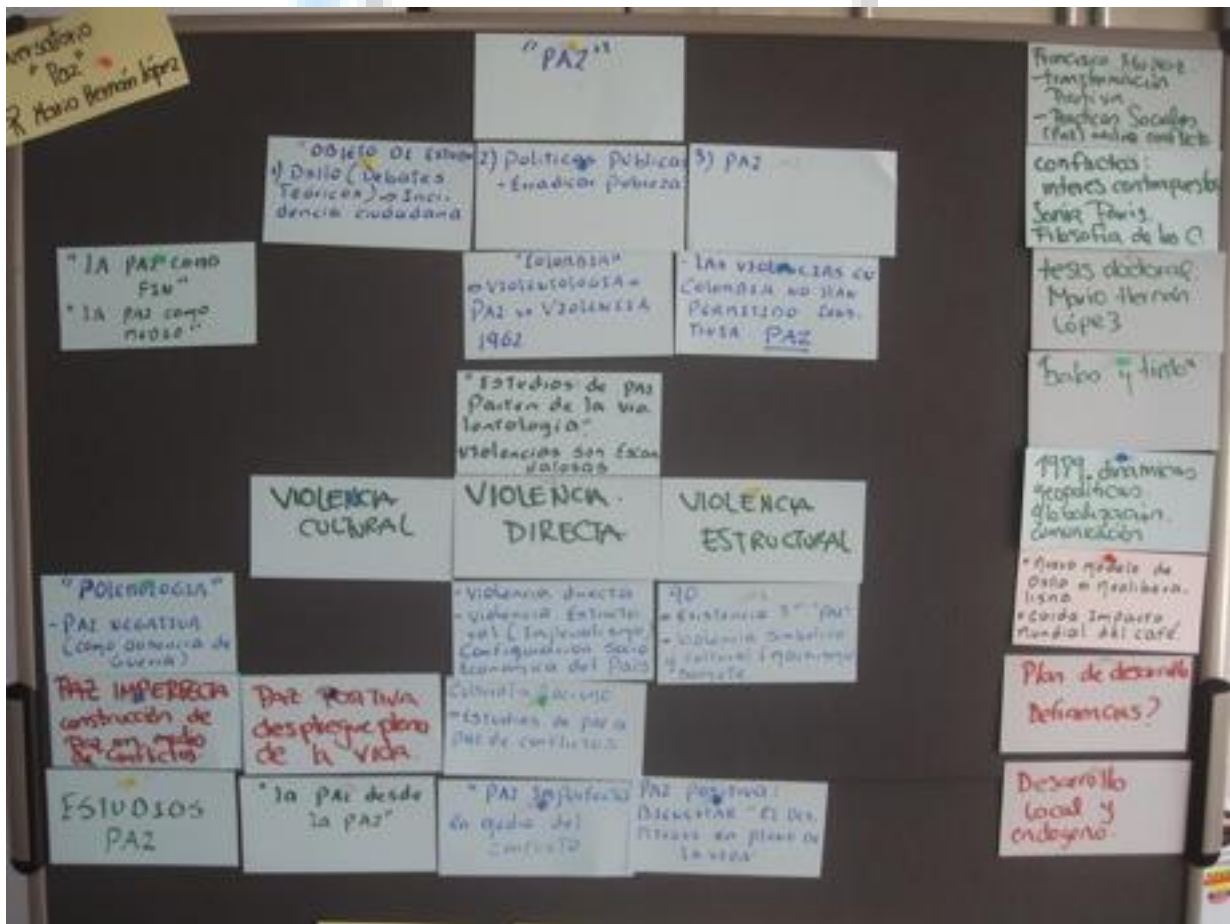 "Paz"
Mario Hernán López
"PAZ"
"OBJETO DE
1) Dsllo (Debates
Teóricos) → Inci-
dencia ciudadana
2) Políticas Públicas
- Erradicar Pobreza
3) PAZ
"LA PAZ COMO
FIN"
"LA PAZ COMO
MEDIO"
"COLOMBIA"
VIOLENTOLOGIA
PAZ VIOLENCIA
1962
- LAS VIOLENCIAS EN
COLOMBIA NO HAN
PERMITIDO
PAZ
"Estudios de paz
Parten de la vio
lentologia"
violencias son
VIOLENCIA
CULTURAL
VIOLENCIA
DIRECTA
VIOLENCIA
ESTRUCTURAL
"POLEMOLOGIA"
- PAZ NEGATIVA
(como ausencia de
Guerra)
- Violencia directa
- Violencia
(Imperialismo,
Configuración Socio
Económica del País
90
- Existencia "Paz"
- Violencia Simbólica
PAZ IMPERFECTA
construcción de
Paz en medio
de conflictos
PAZ POSITIVA
despliegue pleno
de la vida
Estudios de
de conflictos
ESTUDIOS
PAZ
"la paz desde
la paz"
"PAZ Imperfecta
en medio del
conflicto
PAZ POSITIVA:
BIENESTAR
pleno de
la vida
Francisco
- transformación
- Prácticas Sociales
(Paz)
conflictos:
interes contrapuestos
Filosofía de
tesis doctoral
Mario Hernán
López
1989. dinámicas
geopolíticas
globalización.
comunicación
• Nuevo modelo de
• caida Impacto
Mundial del café.
Plan de desarrollo
Desarrollo
Local y
endogeno.